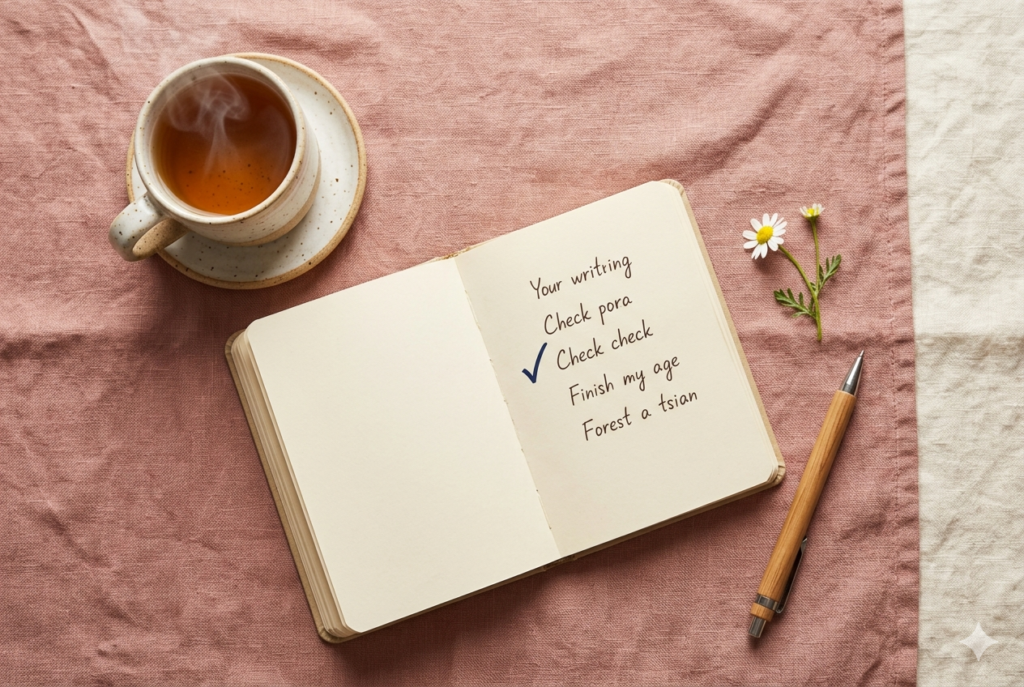 Your writring
Check pora
Check check
Finish my age
Forest a tsian